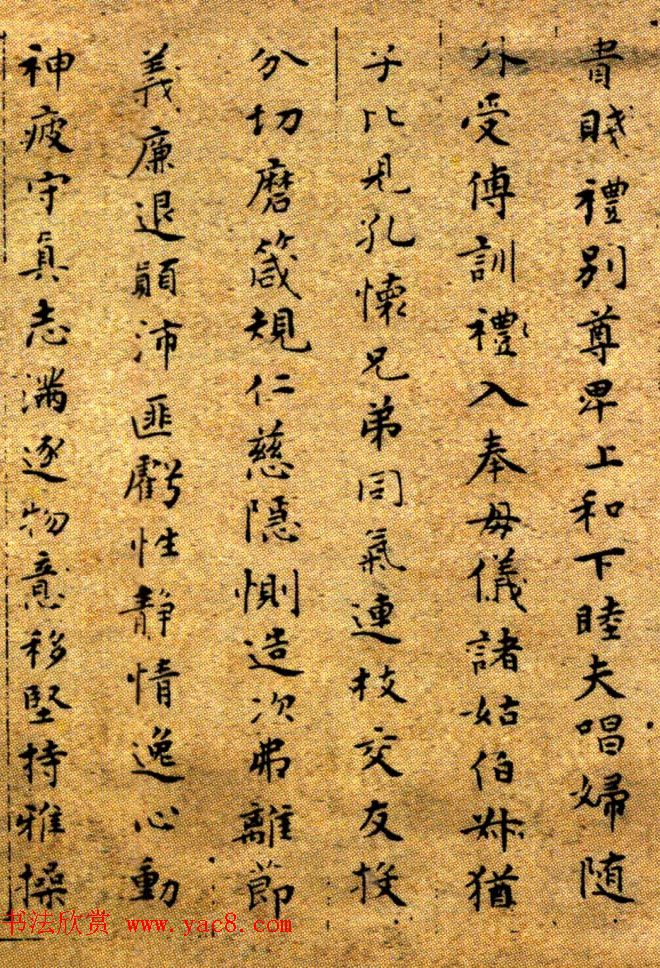 貴賤禮別尊卑上和下睦夫唱婦随
外受傅訓禮入奉母儀諸姑伯叔猶
子比皃孔懷兄弟同氣連枝交友投
分切磨箴規仁慈隱惻造次弗離節
義廉退顛沛匪虧性静情逸心動
神疲守真志滿逐物意移堅持雅操
书法欣赏 www.yac8.com